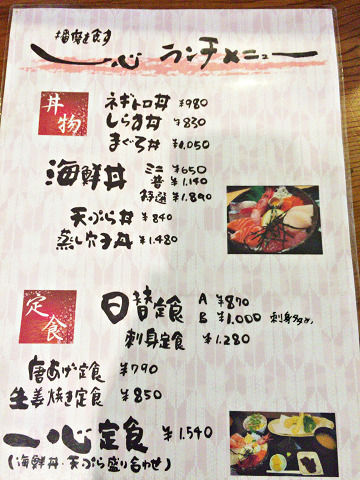 播磨を食す
一心 ランチメニュー
丼物
ネギトロ丼 ¥980
しらす丼 ¥830
まぐろ丼 ¥1,050
海鮮丼 ミニ ¥650
普 ¥1,140
特選 ¥1,890
天ぷら丼 ¥840
蒸し穴子丼 ¥1,480
定食
日替定食 A ¥870
B ¥1,000
刺身定食 ¥1,280
唐あげ定食 ¥790
生姜焼き定食 ¥850
一心定食 ¥1,540
(海鮮丼・天ぷら盛り合わせ)